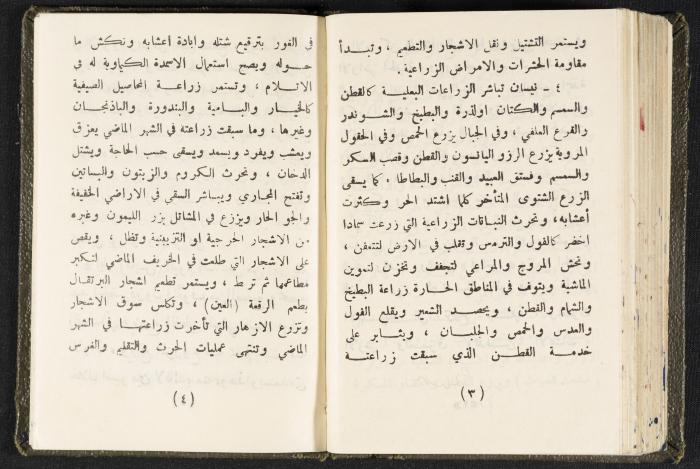 ويستمر التشتيل ونقل الاشجار والتطعيم ، وتبــدأ
مقاومة الحشرات والامراض الزراعية.
٤ - نيسان تباشر الزراعات البعلية كالقطن
والسمسم والكتان اولذرة والبطيخ والشــوندر
والقرع العلفي ، وفي الجبال يزرع الحمص وفي الحقول
المروية يزرع الرز واليانسون والقطن وقصب السكر
والسمسم وفستق العبيد والقنب والبطاطا . كما يسقى
الزرع الشتوي المتأخر كلما اشتد الحر وكثرت
أعشابه، وتحرث النباتات الزراعية التي زرعت سمادا
اخضر كالفول والترمس وتقلب في الارض لتتعفن ،
وتحش المروج والمراعي لتجفف وتخزن لتموين
الماشية ويتوف في المناطق الحــارة زراعة البطيخ
والشمام والقطن ، ويحصد الشعير ويقلع الفول
والعدس والحمص والجلبــان ، ويثــابر على
خدمــة القطــن الذي سبقت زراعتــه
(٣)
في الغور بترقيع شتله وابادة أعشابه ونكش ما
حــوله ويصح استعمال الاسمدة الكياوية له في
الاتــلام ، وتستمر زراعــة المحاصيل الصيفية
كالخيــار والبــامية والبندورة والباذنجــان
وغيرها ، وما سبقت زراعته في الشهر الماضي يعزق
ويعشب ويفرد ويسمد ويسقى حسب الحاجة ويشتل
الدخان ، وتحرث الكروم والزيتون والبساتين
وتفتح المجاري ويباشر السقي في الاراضي الخفيفة
والجو الحار ويزرع في المشاتل بزر الليمون وغيره
من الاشجار الحرجية او التزيينية وتظلل ، ويقص
على الاشجار التي طعمت في الخريف الماضي لتكبر
مطاعمها ثم تربط ، ويستمر تطعيم اشجار البرتقال
بطعم الرقعة (العين) ، وتكلس سوق الاشجار
وتزرع الازهار التي تأخرت زراعتهــا في الشهر
الماضي وتنتهى عمليات الحرث والتقليم والغرس
(٤)